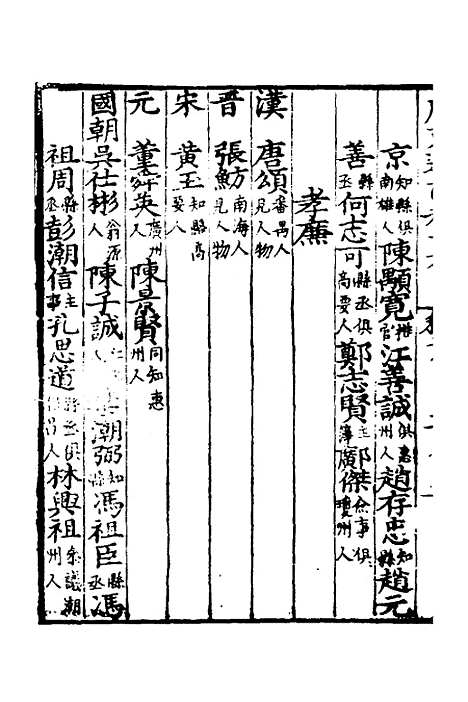 京知縣俱南雄人陳顒寬推官江善誠俱惠州人趙存忠知縣趙元
善縣丞何志可縣丞俱高要人鄭志賢主簿鄺傑僉事俱瓊州人
孝廉
漢 唐頌番禺人見人物
晉 張魴南海人見人物
宋 黃玉知縣高要人
元 董舜英廣州人陳景賢同知惠州人
國朝吳仕彬翁源人陳子誠潮弼知縣馮祖臣縣丞馮
祖周縣丞彭潮信主事孔思道縣丞俱人林興祖參議潮州人